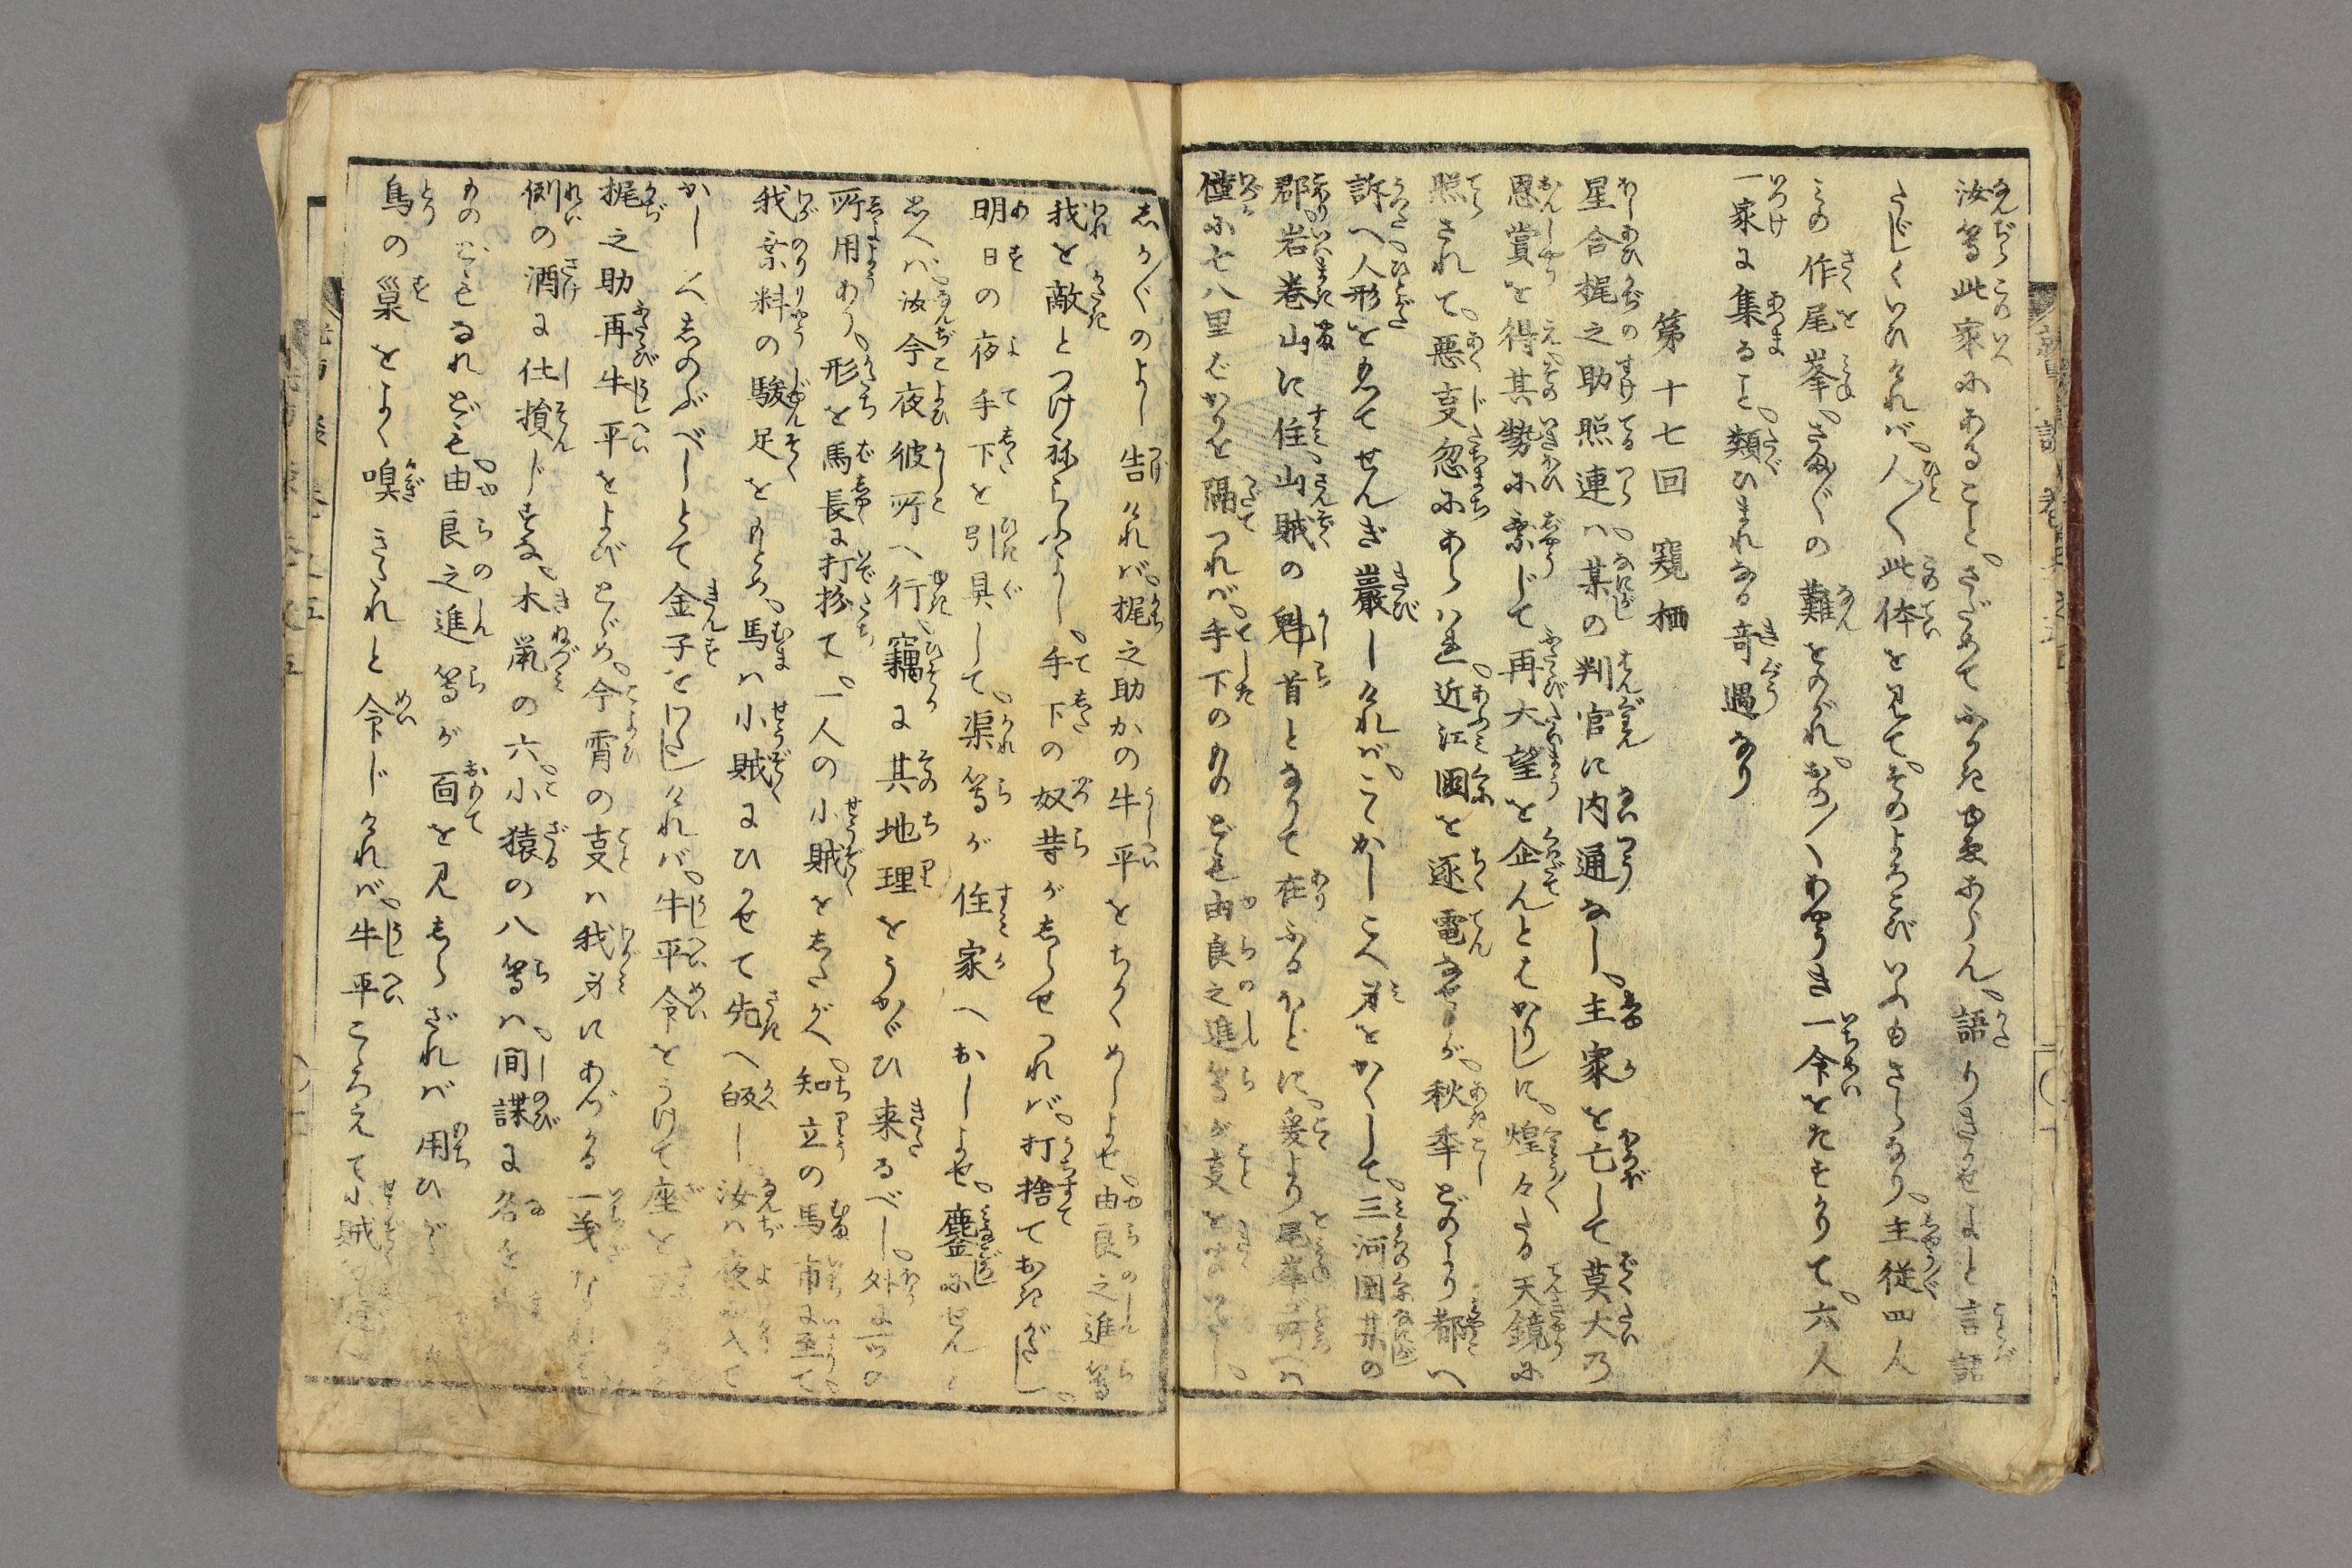 汝等此家にあることさだめてふかきゆゑあらん語りきかせよと言話
さじくいひければ人〳〵此体を見てそのよろこびいふもさらなり主従四人
この作尾峯さま〴〵の難をのがれおの〳〵あやうき一命をたすかりて六人
一家に集ること類ひまれなる奇遇なり
第十七回 窺栖
星合梶之助照連ハ某の判官に内通なし主家を亡して莫大乃
恩賞を得其勢に乗じて再大望を企んとはかりしに煌々たる天鏡に
照されて悪事忽にあらハれ近江国を逐電なせしが秋季どのより都へ
訴へ人形をもつてせんぎ厳しければこゝかしこへ身をかくして三河国某の
郡岩巻山に住山賊の魁首となりて在ふるほどに爰より尾峯が所へハ
僅に七八里ばかりを隔つれば手下のものども由良之進等が事を
しか〴〵のよし告ければ梶之助かの牛平をちかくめしよせ由良之進等
我を敵とつけねらふよし手下の奴等がしらせつれば打捨ておきがたし
明日の夜手下を引具して渠等が住家へおしよせ鏖にせんと
思へバ汝今夜彼所へ行竊に其地理をうかゞひ来るべし外に一ツの
所用あり形を馬長に打扮て一人の小賊をしたがへ知立の馬市に至て
我乗料の駿足をもとめ馬ハ小賊にひかせて先へ皈し汝ハ夜に入て
かしこへしのぶべしとて金子をわたしければ牛平令をうけて座を
梶之助再牛平をよびとゞめ今宵の事ハ我身にあづかる一義なれば
例の酒に仕損じすな木鼠の六小猿の八等ハ間諜に名を
ものどもなれども由良之進等が面を見しらざれバ用ひが
鳥の巣をよく嗅きたれと令じければ牛平こゝろえて小賊